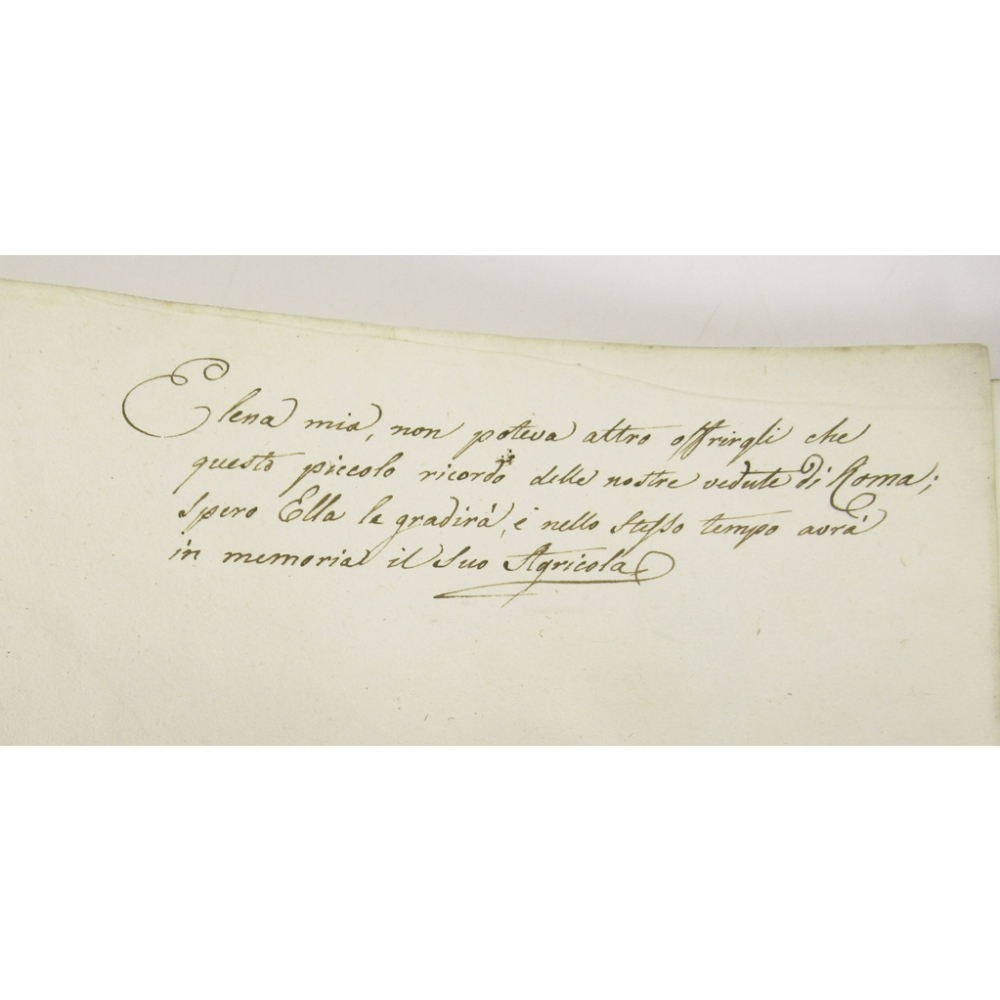 Elena mia, non poteva altro offrirgli che
questo piccolo ricordo delle nostre vedute di Roma;
spero Ella le gradirà, e nello stesso tempo avrà
in memoria il Suo Agricola